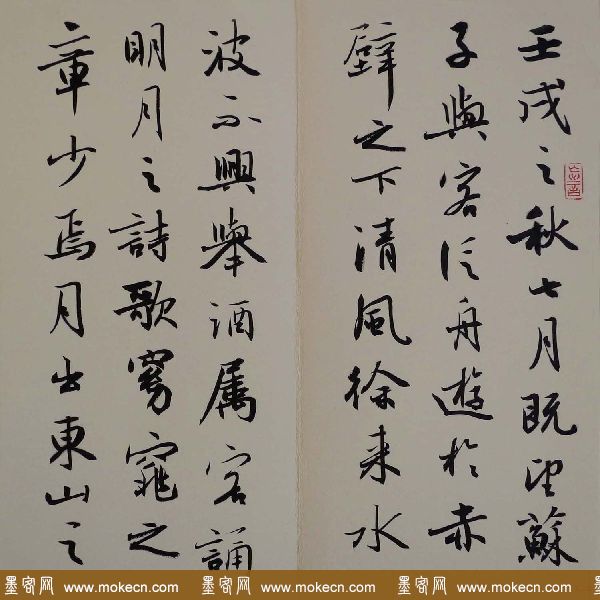 壬戌之秋七月既望蘇
子與客泛舟遊於赤
壁之下清風徐来水
波不興舉酒属客誦
明月之詩歌窈窕之
章少焉月出東山之
墨客网 www.mokecn.com 墨客网 www.mokecn.com 墨客网 www.mokecn.com